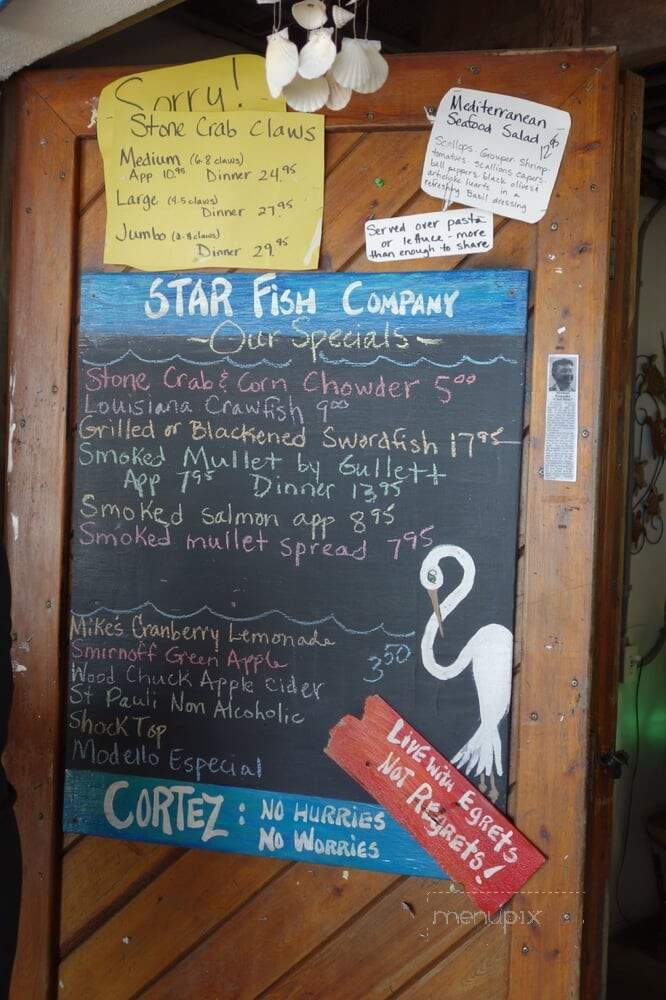 Sorry!
Stone Crab Claws
Medium (6-8 claws)
App 10.95 Dinner 24.95
Large (4-5 claws)
Dinner 27.95
Jumbo (2-3 claws)
Dinner 29.95
Mediterranean
Seafood Salad
12.95
Scallops. Grouper. Shrimp.
tomatoes. scallions. capers.
bell peppers. black olives &
artichoke hearts in a
refreshing Basil dressing
Served over pasta
or lettuce - more
than enough to share
STAR FISH COMPANY
~Our Specials~
Stone Crab & Corn Chowder 5.00
Louisiana Crawfish 9.00
Grilled or Blackened Swordfish 17.95
Smoked Mullet by Gullett
App 7.95 Dinner 13.95
Smoked salmon app 8.95
Smoked mullet spread 7.95
Mike's Cranberry Lemonade
Smirnoff Green Apple
3.50
Wood Chuck Apple Cider
St Pauli Non Alcoholic
Shock Top
Modello Especial
CORTEZ: NO HURRIES
NO WORRIES
LIVE with EGRETS
NOT REGRETS!
menupix